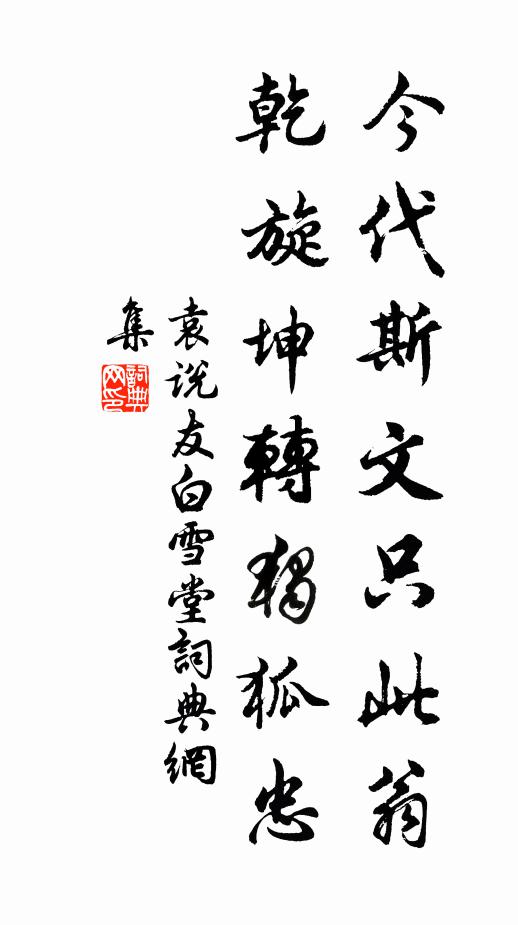 今代斯文只此翁
乾旋坤轉獨狐忠
袁説友白雪堂詞典網
集
詞典
网印